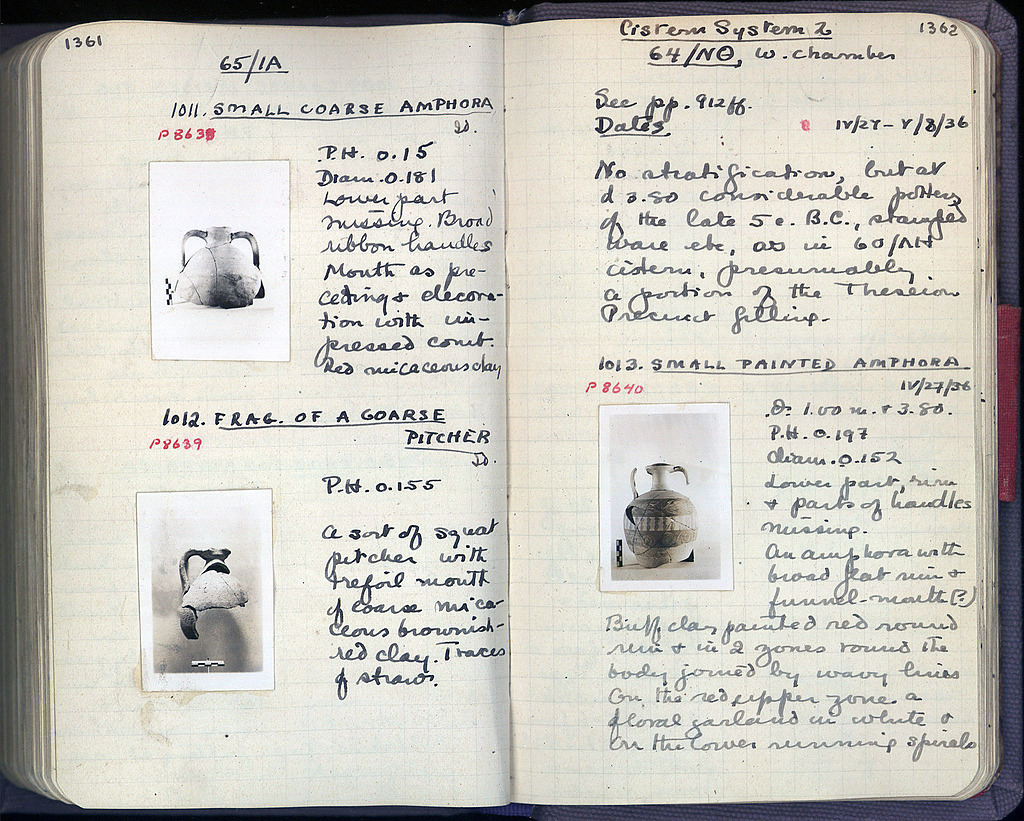 1361
65/1A
1011. SMALL COARSE AMPHORA
Id.
P 8638
P.H. 0.15
Diam. 0.181
Lower part
missing. Broad
ribbon handles
Mouth as pre-
ceding & decora-
tion with im-
pressed comb.
Red micaceous clay
1012. FRAG. OF A COARSE
PITCHER
Id.
P 8639
P.H. 0.155
A sort of squat
pitcher with
trefoil mouth
of coarse mica-
ceous brownish-
red clay. Traces
of straws.
1362
Cistern System 2
64/ΝΘ, W. chamber
See pp. 912ff.
Dates IV/27 – V/8/36
No stratification, but at
d 3.80 considerable pottery
of the late 5 c. B.C., stamped
ware etc, as in 60/ΛΗ
cistern, presumably
a portion of the Theseion
Precinct filling.
1013. SMALL PAINTED AMPHORA
P 8640 IV/27/36
D. 1.00 m. & 3.80.
P.H. 0.197
Diam. 0.152
Lower part, rim
& parts of handles
missing.
An amphora with
broad flat rim &
funnel-mouth (?)
Buff clay painted red round
rim & in 2 zones round the
body joined by wavy lines
On the red, upper zone a
floral garland in white &
on the lower running spirals